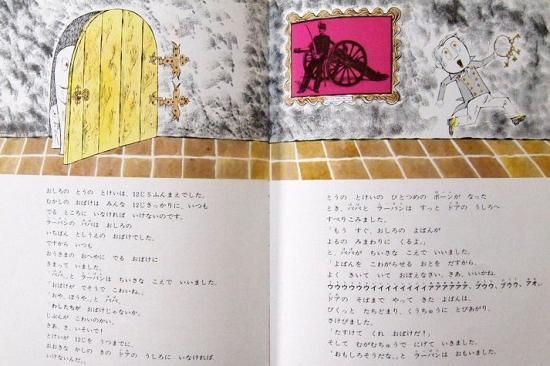 おしろの とうの とけいは、12じ5ふんまえでした。
むかしの おばけは みんな 12じきっかりに、いつも
でる ところに いなければ いけないのです。
ラーバンの パパは おしろの
いちばん としうえの おばけでした。
ですから いつも
おうさまの おへやに でる おばけに
きまって いました。
「パパ」、と ラーバンは ちいさな こえで いいました。
「おばけが でそうで こわいね。」
「おや、ぼうや」、と パパ、
「わたしたちが おばけじゃないか。
じぶんが こわいのかい。
さあ、さ、いそいで！
とけいが 12じを うつまでに、
おおきな かしの きの ドアの うしろに いなければ
いけないんだ。」
とうの とけいの ひとつめの ボーンが なった
とき、パパと ラーバンは すっと ドアの うしろへ
すべりこみました。
「もう すぐ、おしろの よばんが
よるの みまわりに くるよ。」
と、パパが ちいさな こえで いいました。
「よばんを こわがらせる おとを だすから、
よく きいて いて おぼえなさい。さあ、いいかね。
ドアの そばまで やって きた よばんは、
びくっと たちどまり、くうちゅうに とびあがり、
さけびました。
「たすけて くれ おばけだ！」
そして むがむちゅうで にげて いきました。
「おもしろそうだな。」と ラーバンは おもいました。